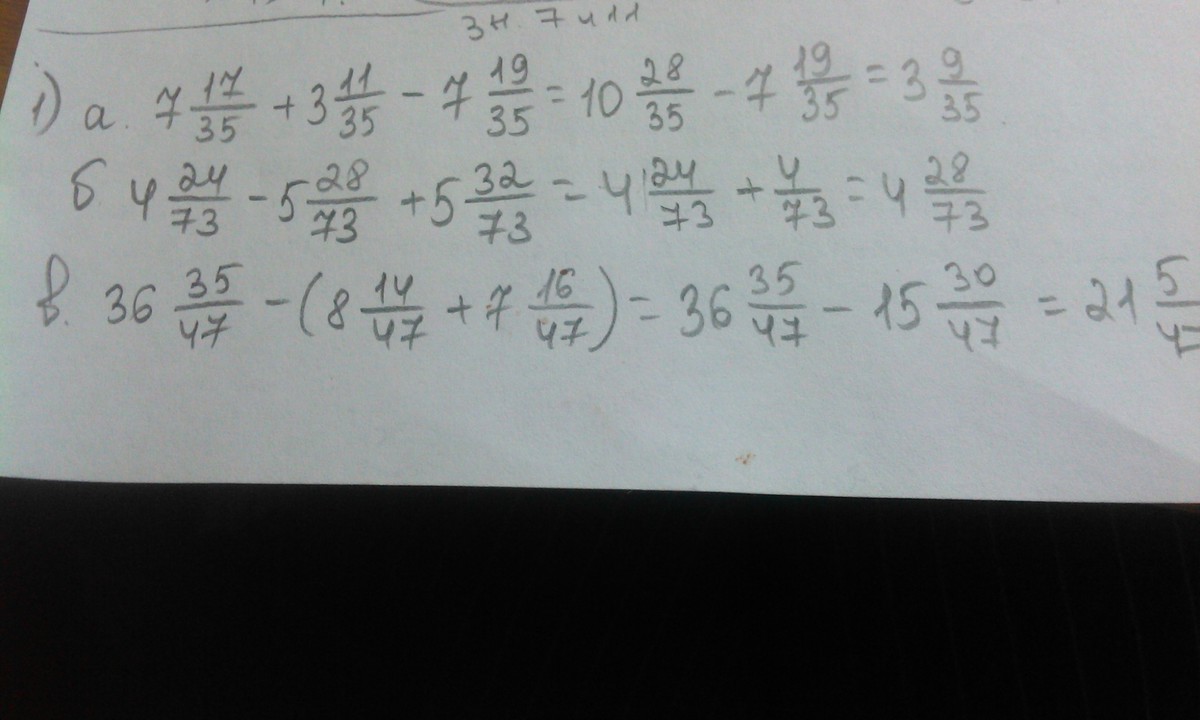 зн. 7 и 11
1) а. 7 17/35 + 3 11/35 - 7 19/35 = 10 28/35 - 7 19/35 = 3 9/35
б. 4 24/73 - 5 28/73 + 5 32/73 = 4 24/73 + 4/73 = 4 28/73
в. 36 35/47 - (8 14/47 + 7 16/47) = 36 35/47 - 15 30/47 = 21 5/47